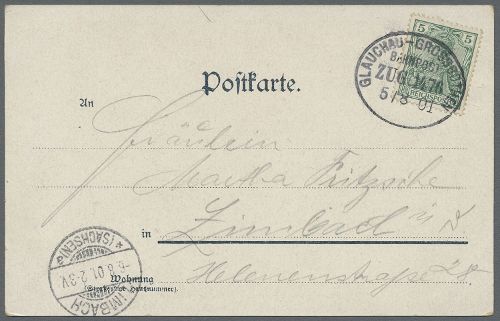 5 5
GLAUCHAU-GROSSBOTHEN
BAHNPOST
ZUG 1476
5/8 01
Postkarte.
An
Fräulein
Martha Fritzsche
in Limbach i/S
Helenenstraße
Wohnung
(Straße und Hausnummer).
LIMBACH
*(SACHSEN)*
-6.8.01.2-3V.